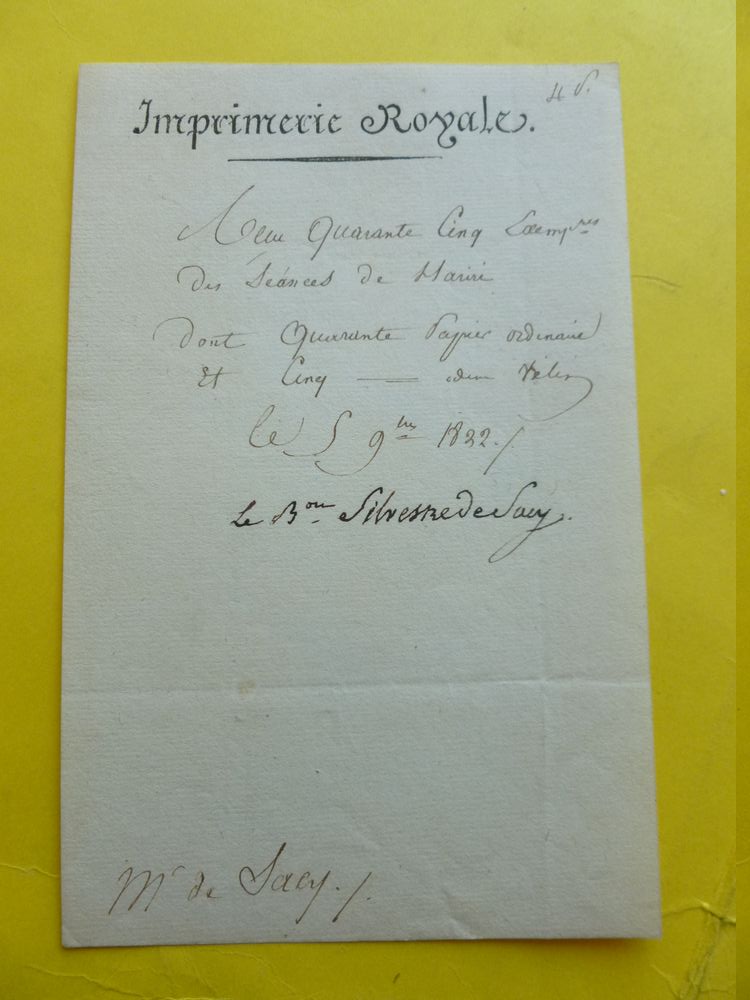 Imprimerie Royale.
Reçu Quarante Cinq Exemp.res
des Séances de Hariri
dont Quarante Papier ordinaire
Et Cinq — idem Vélin
le 5 9bre 1822./
Le Bon Silvestre de Sacy.
Mr de Sacy./.